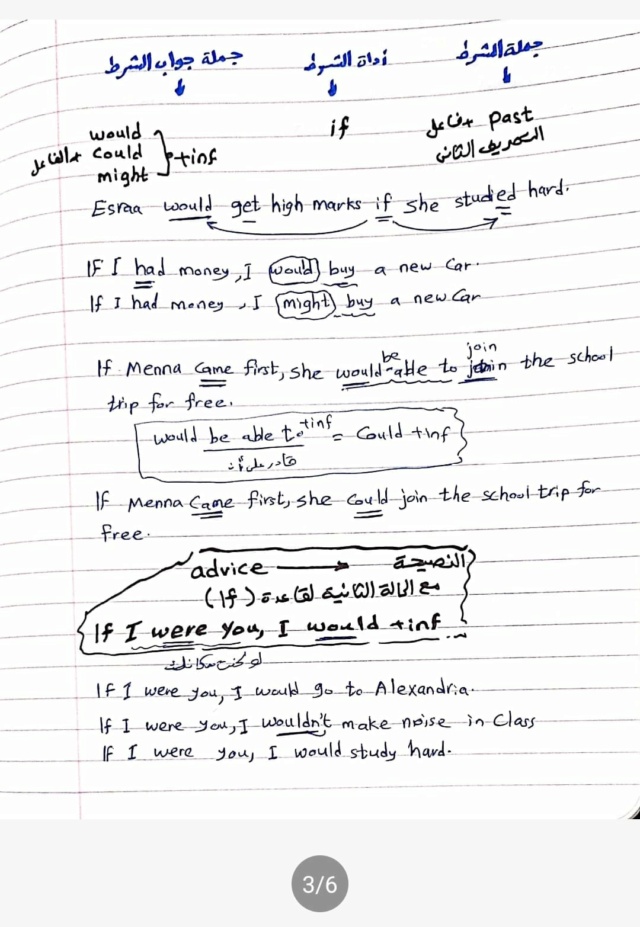 جملة الشرط أداة الشرط جملة جواب الشرط
past + فاعل if would
التصريف الثاني could +inf + الفاعل
might
Esraa would get high marks if she studied hard.
IF I had money, I would buy a new car.
If I had money, I might buy a new car
If Menna came first, she would be able to join join the school
trip for free.
would be able to +inf = Could +inf
قادر على أن
If Menna Came first, she could join the school trip for
free.
advice → النصيحة
مع الحالة الثانية لقاعدة (If)
If I were you, I would +inf
لو كنت مكانك
If I were you, I would go to Alexandria.
If I were you, I wouldn't make noise in Class
If I were you, I would study hard.
3/6